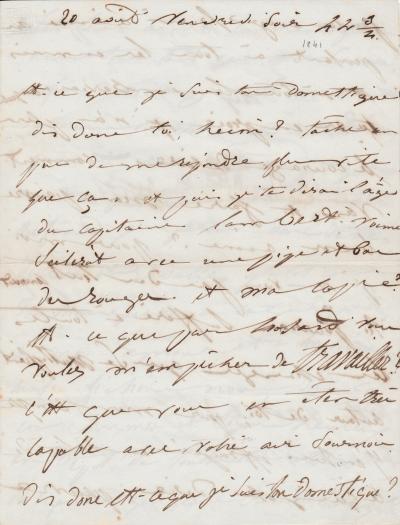 20 août vendredi soir
1841
Est-ce que je suis ton domestique
dis donc toi, hein? tâche un
peu de me répondre plus vite
que ça et puis je te dirai l'âge
du capitaine
avec une pipe et
du rouge et ma copie?
Est-ce que par hasard vous
voulez m'empêcher de travailler?
C'est que vous en êtes très
capable avec votre air sournois
dis donc est-ce que je suis ton domestique?